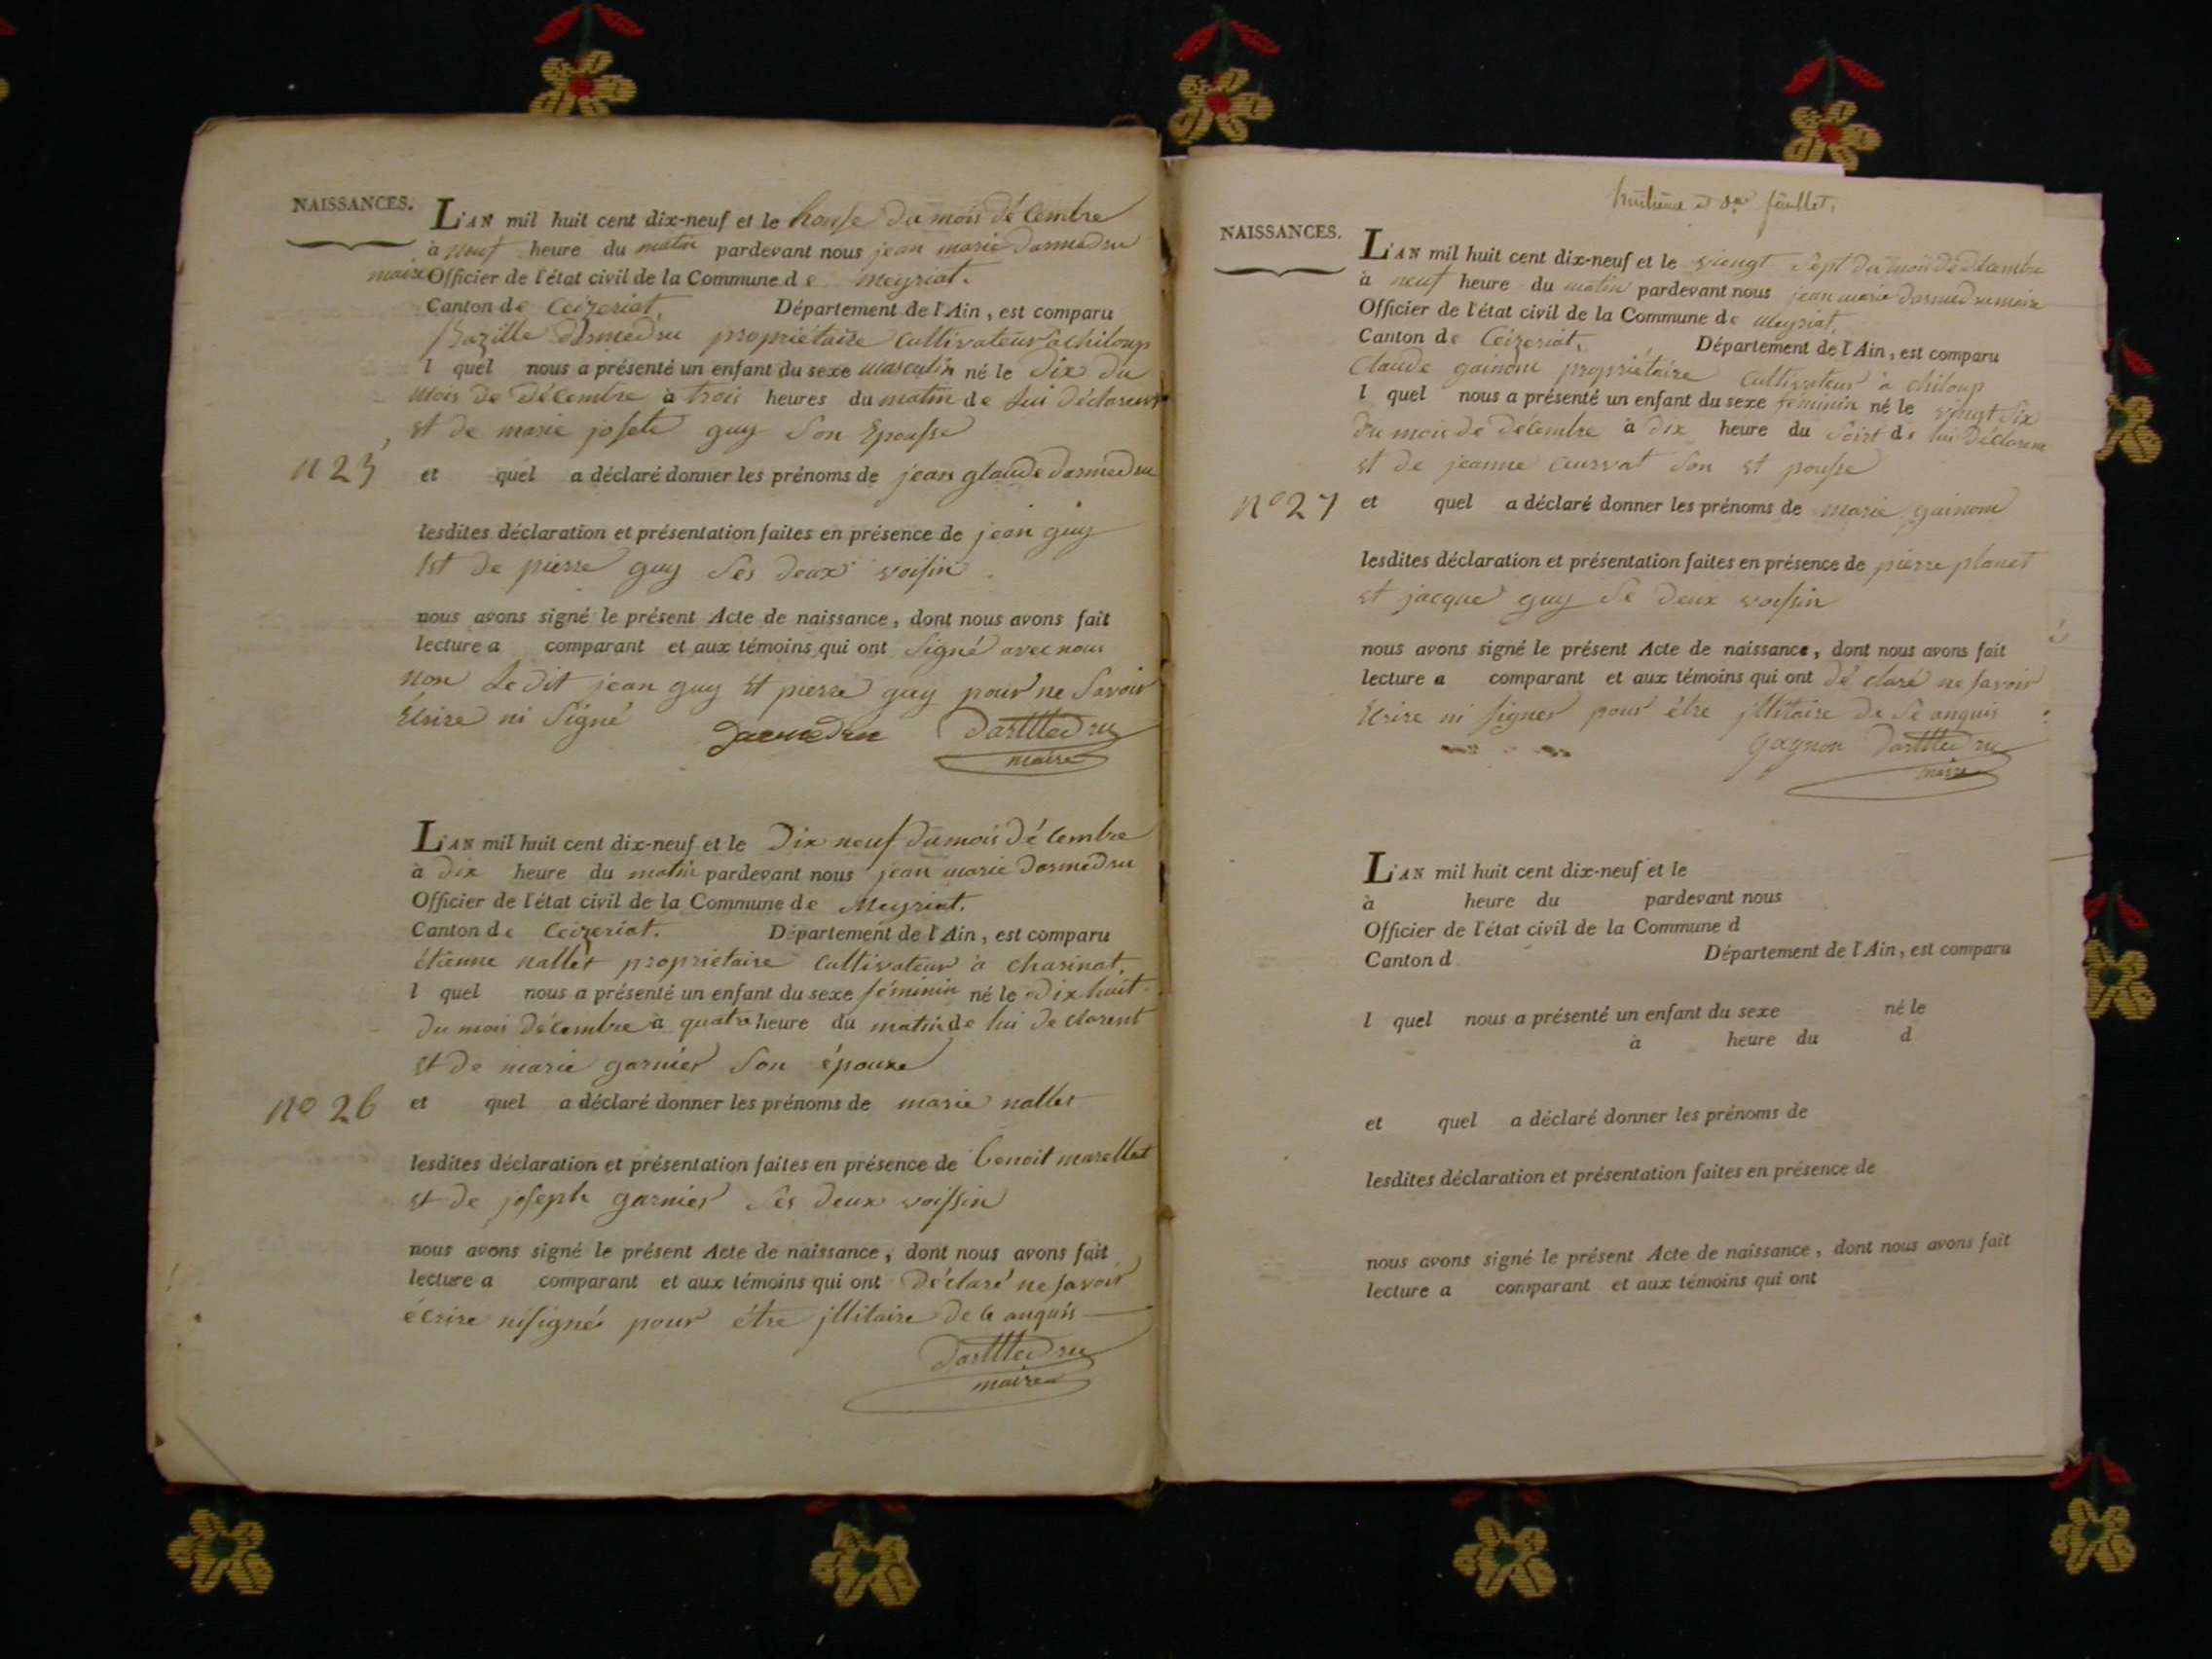 NAISSANCES.
L'AN mil huit cent dix-neuf et le honse du mois décembre
à neuf heure du matin pardevant nous jean marie darmedru
maire Officier de l'état civil de la Commune de meyriat.
Canton de Ceizeriat, Département de l'Ain, est comparu
Bazille darmedru propriétaire cultivateur a chiloup
l quel nous a présenté un enfant du sexe masculin né le dix du
mois de décembre à trois heures du matin de lui déclarent
et de marie josete guy son Epousse
n 25 et quel a déclaré donner les prénoms de jean glaude darmedru
lesdites déclaration et présentation faites en présence de jean guy
Est de pierre guy ses deux voisin
nous avons signé le présent Acte de naissance, dont nous avons fait
lecture a comparant et aux témoins qui ont signé avec nous
non Le dit jean guy et pierre guy pour ne savoir
Ecrire ni signé darmedru darmedru
maire
L'AN mil huit cent dix-neuf et le Dix neuf du mois décembre
à dix heure du matin pardevant nous jean marie darmedru
Officier de l'état civil de la Commune de Meyriat.
Canton de Ceizeriat. Département de l'Ain, est comparu
étienne nallet propriétaire cultivateur à charinat,
l quel nous a présenté un enfant du sexe féminin né le dix huit
du mois décembre à quatre heure du matin de lui de clarent
et de marie garnier son épouxe
no 26 et quel a déclaré donner les prénoms de marie nallet
lesdites déclaration et présentation faites en présence de benoit marellet
et de joseph garnier ses deux voissin
nous avons signé le présent Acte de naissance, dont nous avons fait
lecture a comparant et aux témoins qui ont déclaré ne savoir
écrire ni signé pour étre jllitaire de ce anquis
darmedru
maire
huitieme et der feuillet.
NAISSANCES.
L'AN mil huit cent dix-neuf et le viengt sept du mois de décembre
à neuf heure du matin pardevant nous jean marie darmedru maire
Officier de l'état civil de la Commune de Meyriat.
Canton de Ceizeriat, Département de l'Ain, est comparu
Claude gainom propriétaire cultivateur à chiloup
l quel nous a présenté un enfant du sexe féminin né le vingt six
du mois de décembre à dix heure du soirt de lui déclarent
et de jeanne Cursvat son et pousse
no 27 et quel a déclaré donner les prénoms de marie gainom
lesdites déclaration et présentation faites en présence de pierre planet
et jacque guy se deux voissin
nous avons signé le présent Acte de naissance, dont nous avons fait
lecture a comparant et aux témoins qui ont dé claré ne savoir
Ecrire ni signer pour étre jllitaire de se anquis
gagnon darmedru
maire
L'AN mil huit cent dix-neuf et le
à heure du pardevant nous
Officier de l'état civil de la Commune d
Canton d Département de l'Ain, est comparu
l quel nous a présenté un enfant du sexe né le
à heure du d
et quel a déclaré donner les prénoms de
lesdites déclaration et présentation faites en présence de
nous avons signé le présent Acte de naissance, dont nous avons fait
lecture a comparant et aux témoins qui ont